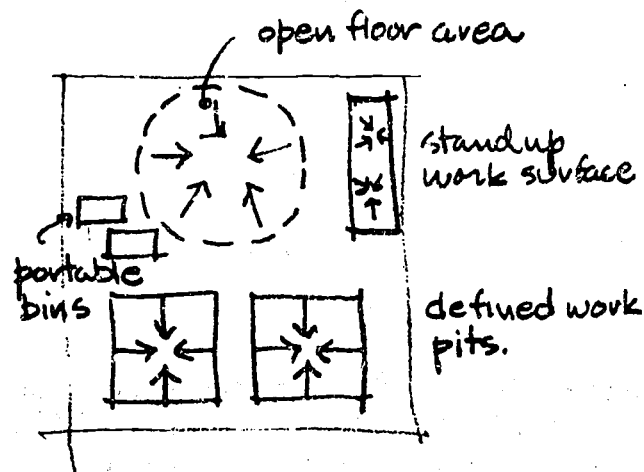 open floor area
standup
work surface
portable
bins
defined work
pits.